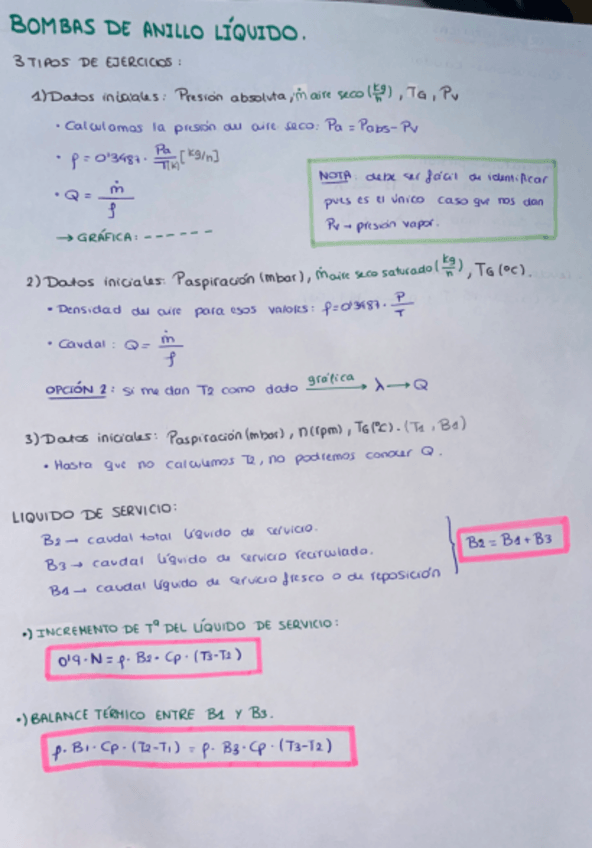 BOMBAS DE ANILLO LÍQUIDO.
3 TIPOS DE EJERCICIOS:
1) Datos iniciales: Presión absoluta, ṁ aire seco (kg/h), TG, Pv
• Calculamos la presión del aire seco: Pa = Pabs - Pv
• ρ = 0'3487 · Pa/T(K) [kg/h]
• Q = ṁ/ρ
→ GRÁFICA: - - - - - -
NOTA: debe ser fácil de identificar
pues es el único caso que nos dan
Pv → presión vapor.
2) Datos iniciales: Paspiración (mbar), ṁ aire seco saturado (kg/h), TG (ºC).
• Densidad del aire para esos valores: ρ = 0'3487 · P/T
• Caudal: Q = ṁ/ρ
OPCIÓN 2: si me dan T2 como dato gráfica → λ → Q
3) Datos iniciales: Paspiración (mbar), n (rpm), TG (ºC). (T1, B1)
• Hasta que no calculemos T2, no podremos conocer Q.
LIQUIDO DE SERVICIO:
B2 → caudal total líquido de servicio.
B3 → caudal líquido de servicio recirculado.
B1 → caudal líquido de servicio fresco o de reposición
B2 = B1 + B3
•) INCREMENTO DE Tª DEL LÍQUIDO DE SERVICIO:
0'9 · N = ρ · B2 · Cp · (T3 - T2)
•) BALANCE TÉRMICO ENTRE B1 Y B3.
ρ · B1 · Cp · (T2 - T1) = ρ · B3 · Cp · (T3 - T2)